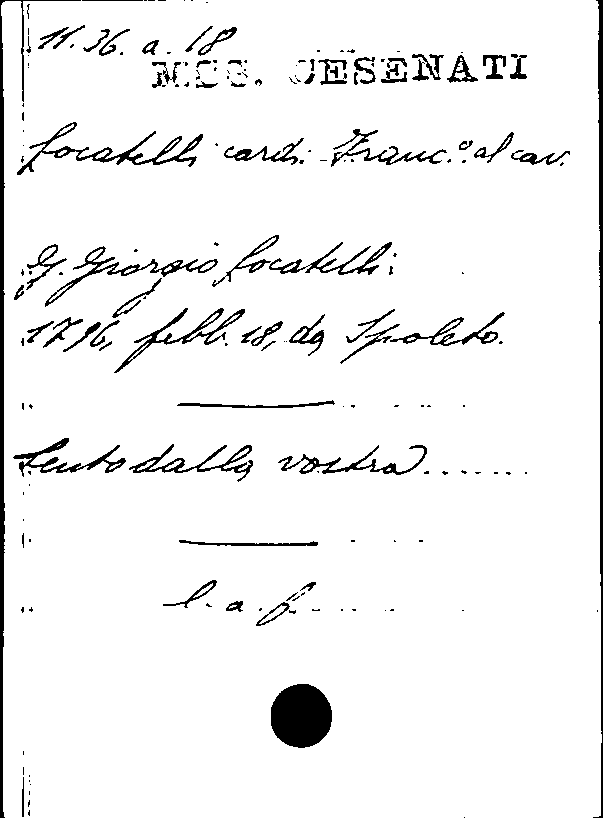 11. 36. a. 18
MSS. CESENATI
Locatelli card. Franc.º al cav.
G. Giorgio Locatelli;
1796, febb. 18, da Spoleto.
Sento dalla vostra.......
l. a. f.